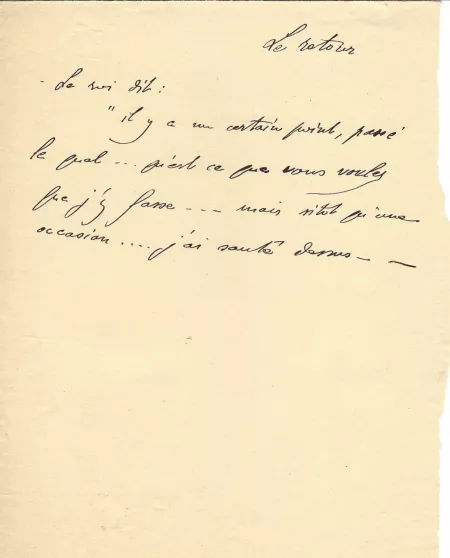 Le retour
- Le roi dit :
"il y a un certain point, passé
le quel ... qu'est ce que vous voulez
que j'y fasse --- mais sitôt qu'une
occasion .... j'ai sauté dessus - -